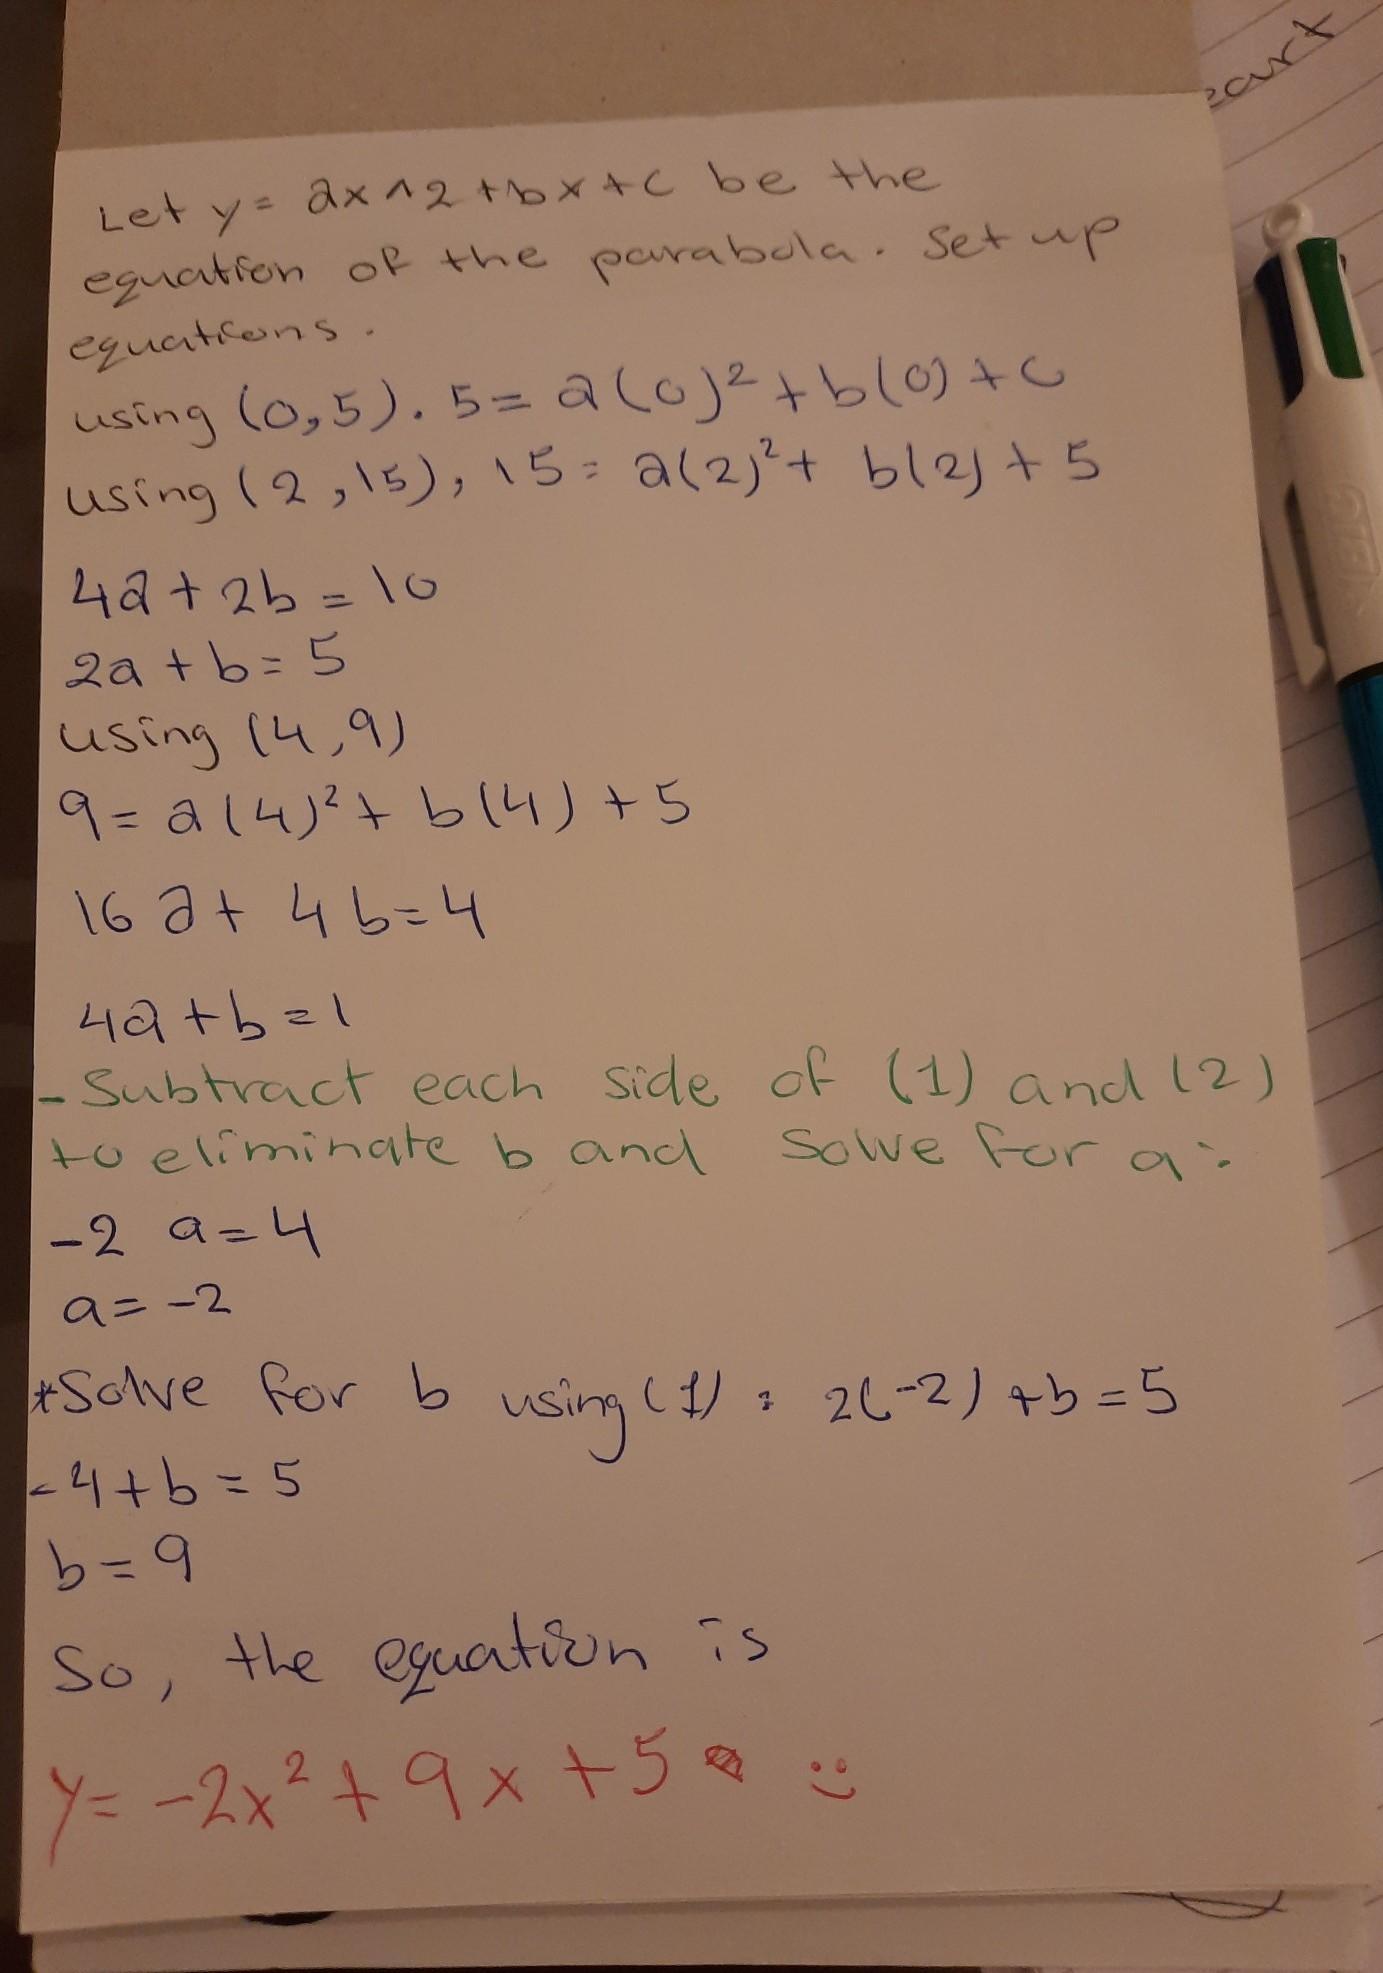 eart
Let y = ax^2 + bx + c be the
equation of the parabola. Set up
equations.
using (0,5). 5 = a(0)² + b(0) + c
using (2,15), 15 = a(2)² + b(2) + 5
4a + 2b = 10
2a + b = 5
using (4,9)
9 = a(4)² + b(4) + 5
16 a + 4 b = 4
4a + b = 1
- Subtract each side of (1) and (2)
to eliminate b and Solve for a:
-2 a = 4
a = -2
*Solve for b using (1) : 2(-2) + b = 5
-4 + b = 5
b = 9
So, the equation is
y = -2x² + 9x + 5 :)
BIC